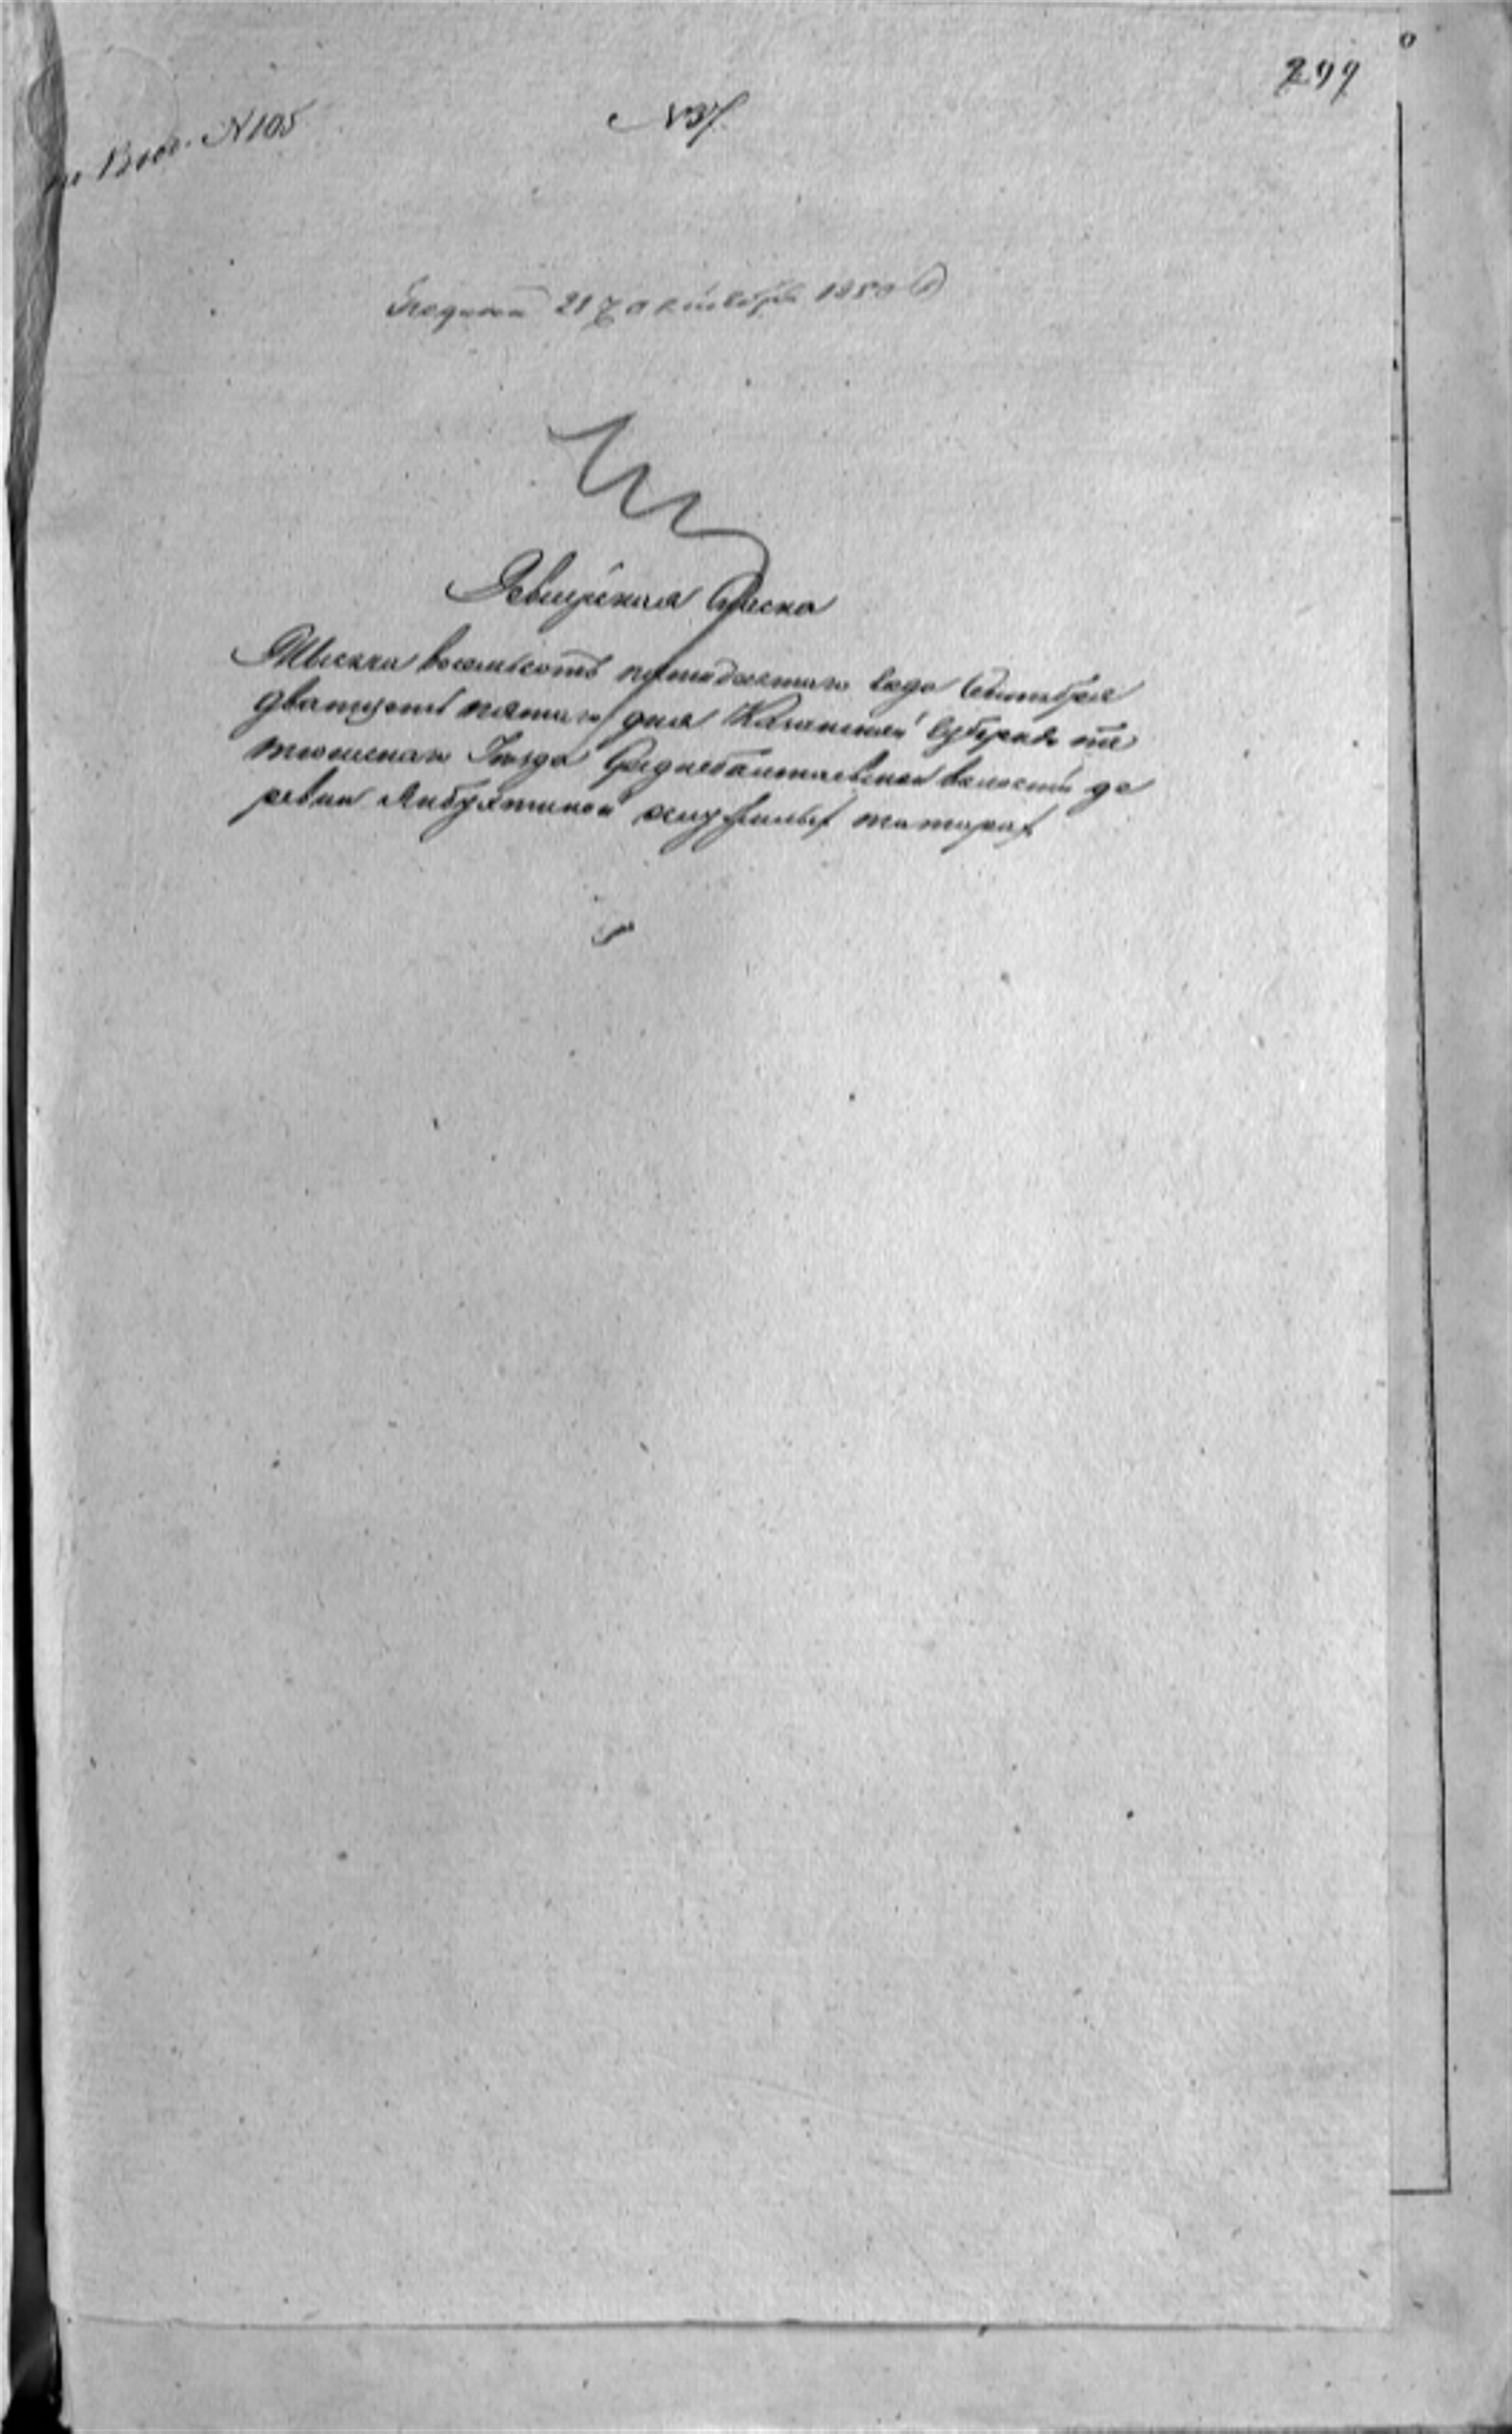 299
№ 37
поВвод. № 105
Подана 21 октября 1850
Ревизская Сказка
Тысяча восемьсотъ пятидесятаго года Октября
дватцать пятаго дня Казанской Губернiи те
тюшскаго Уезда Среднебалтаевской волости де
ревни Янбухтиной служилых татарах